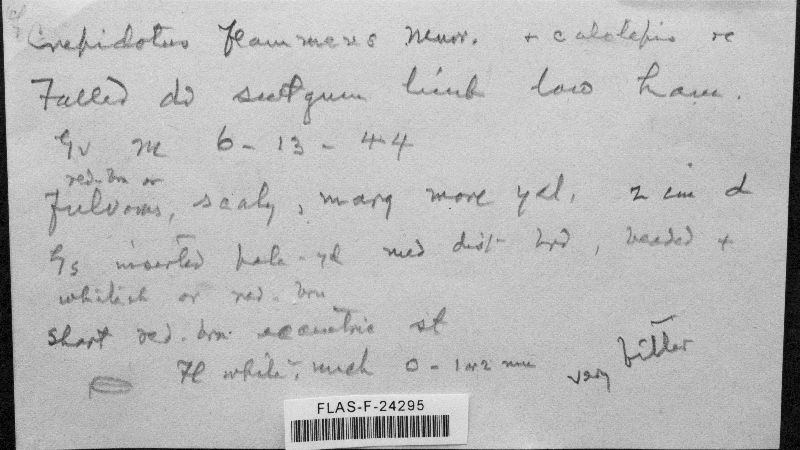 Crepidotus flammeus minor. + calolepis
Fallen dd sweetgum limb low ham.
Gv m 6-13-44
red-brn or
Fulvous, scaly, marg more yel, 2 cm d
Gs inserted pale-yel med dist brd, beaded +
whitish or red-brn
short red-brn eccentric st
Fl white, much 0-1 or 2 mm very bitter
FLAS-F-24295